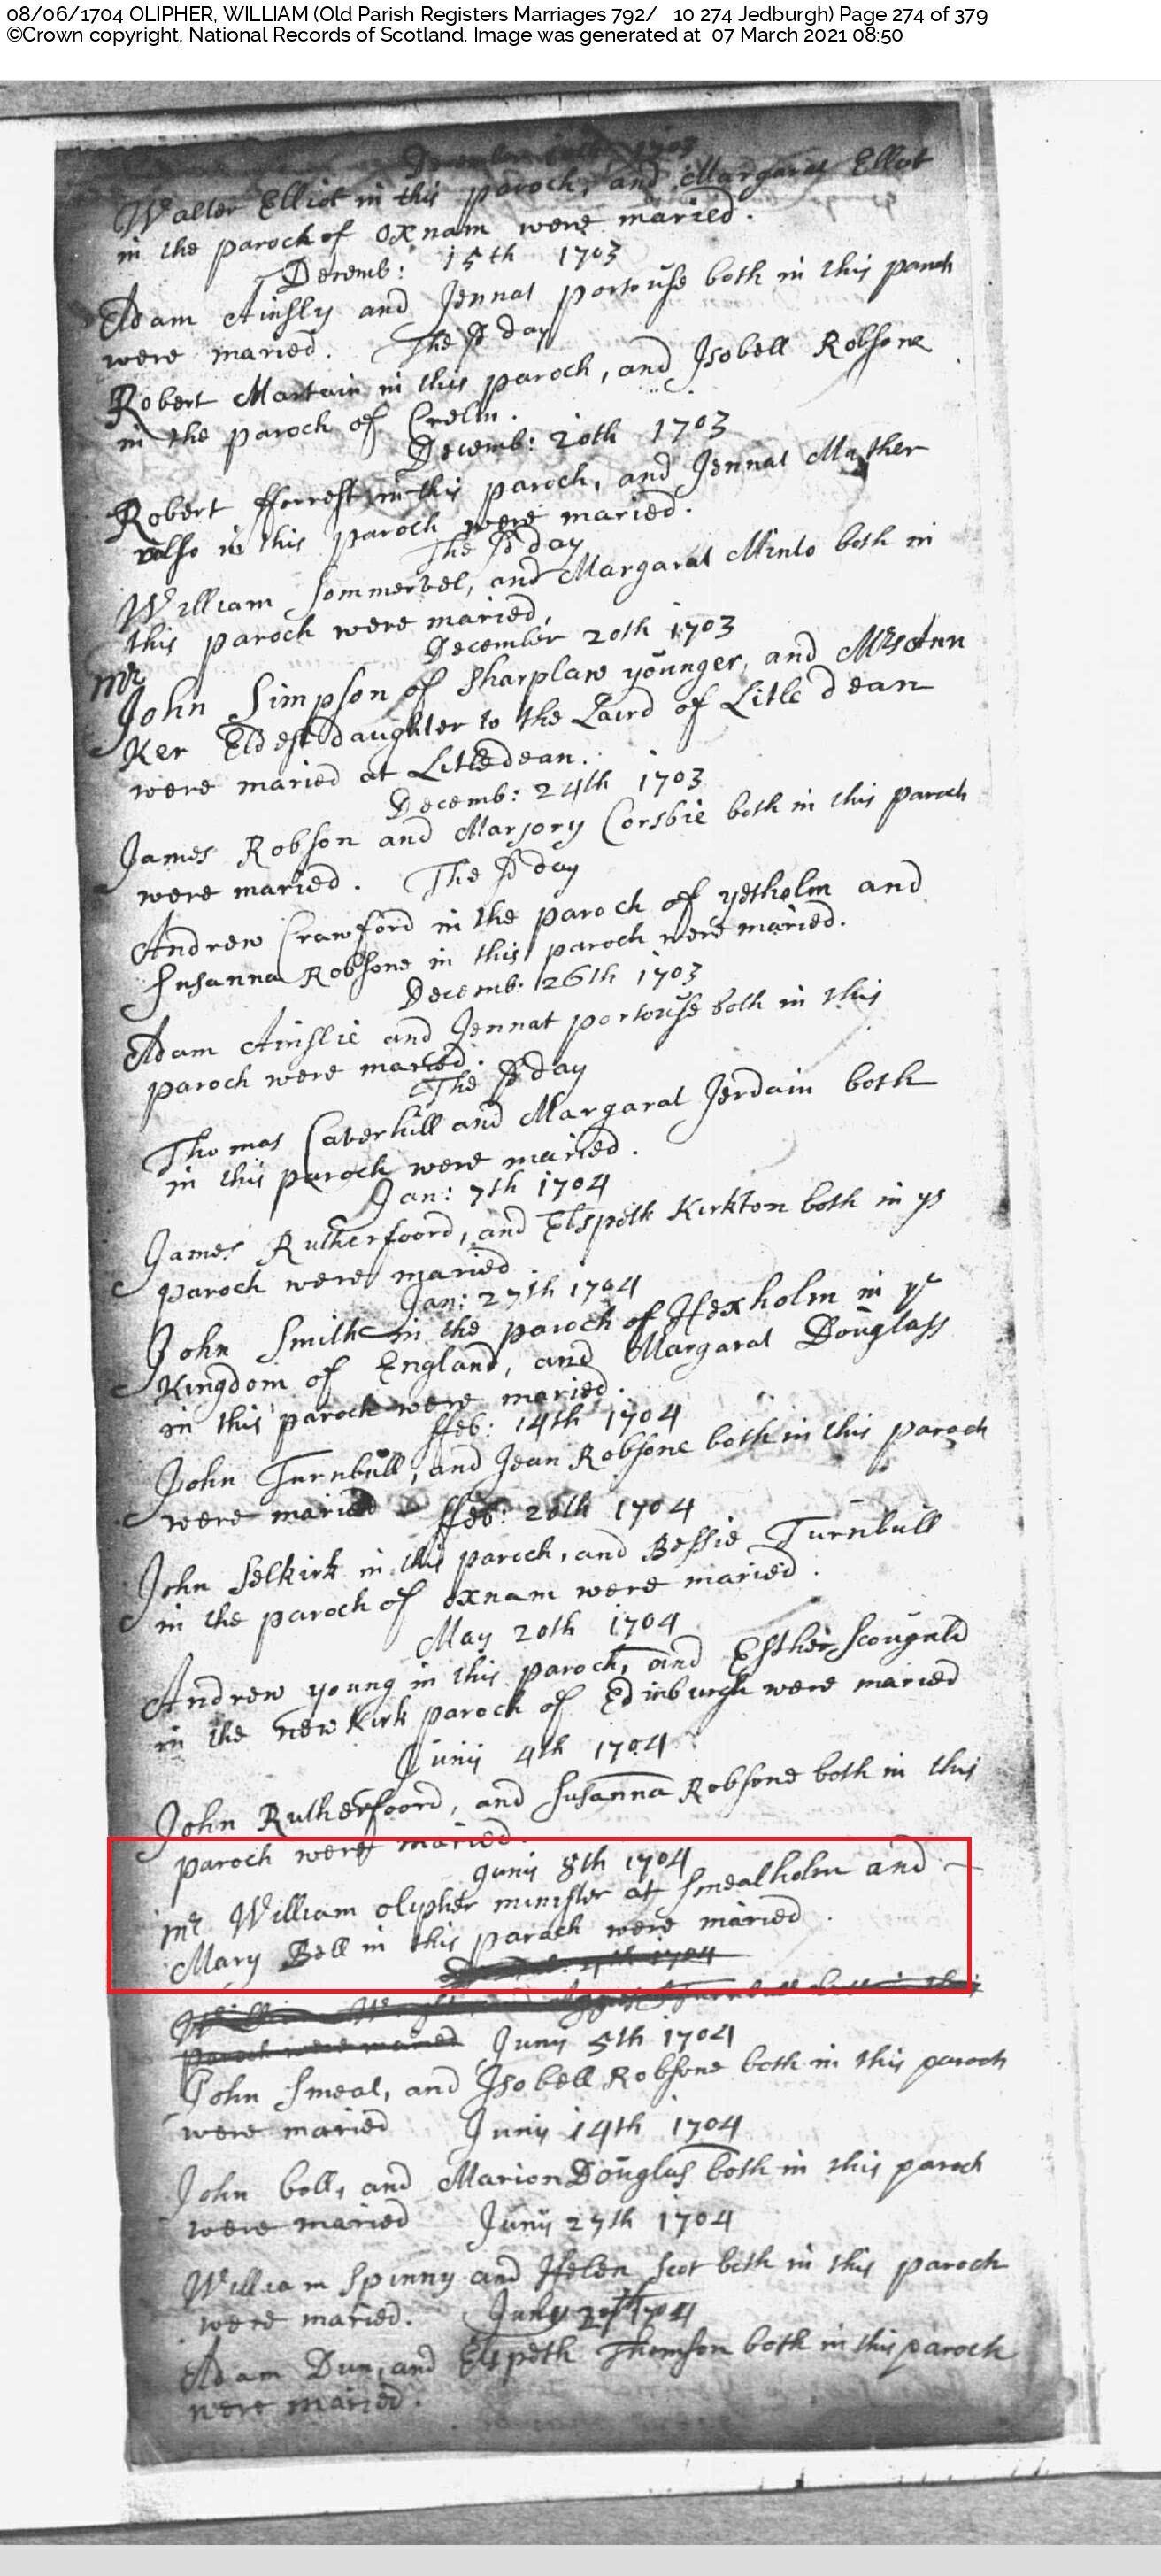 08/06/1704 OLIPHER, WILLIAM (Old Parish Registers Marriages 792/ 10 274 Jedburgh) Page 274 of 379
©Crown copyright, National Records of Scotland. Image was generated at 07 March 2021 08:50
1703
Walter Elliot in this paroch, and Margarat Elliot
in the paroch of oxnam were maried.
Decemb: 15th 1703
Adam Ainsly and Jennat portouse both in this paroch
were maried. The sd day
Robert Martain in this paroch, and Isobell Robsone
in the paroch of
Decemb: 20th 1703
Robert fforrest in this paroch, and Jennat Mather
also in this paroch were maried.
The sd day
William Sommervel, and Margarat Minto both in
this paroch were maried,
December 20th 1703
mr
John Simpson of Sharplaw younger, and Mrs Ann
Ker Eldest daughter to the Laird of Litledean
were maried at Litledean.
Decemb: 24th 1703
James Robson and Marjory Corsbie both in this paroch
were maried. The sd day
Andrew Crawford in the paroch of yetholm and
Susanna Robsone in this paroch were maried.
Decemb: 26th 1703
Adam Ainslie and Jennat portouse both in this
paroch were maried.
The sd day
Thomas Caverhill and Margarat Jerdain both
in this paroch were maried.
Jan: 7th 1704
James Rutherfoord, and Elspeth Kirkton both in ys
paroch were maried.
Jan: 27th 1704
John Smith in the paroch of Hexholm in ye
Kingdom of England, and Margarat Douglass
in this paroch were maried.
ffeb: 14th 1704
John Turnbull, and Jean Robsone both in this paroch
were maried ffeb: 20th 1704
John Selkirk in this paroch, and Bessie Turnbull
in the paroch of oxnam were maried.
May 20th 1704
Andrew young in this paroch, and Esther Scougald
in the new Kirk paroch of Edinburgh were maried
Junij 4th 1704
John Rutherfoord, and Susanna Robsone both in this
paroch were maried.
Junij 8th 1704
mr William olypher minister at Smealholm and
Mary Bell in this paroch were maried.
4th 1704
William both in this
paroch were maried Junij 5th 1704
John Smeal, and Isobell Robsone both in this paroch
were maried Junij 14th 1704
John bell, and Marion Douglas both in this paroch
were maried Junij 27th 1704
William Spinny and Helen Scot both in this paroch
were maried. July 1704
Adam Dun, and Elspeth Thomson both in this paroch
were maried.